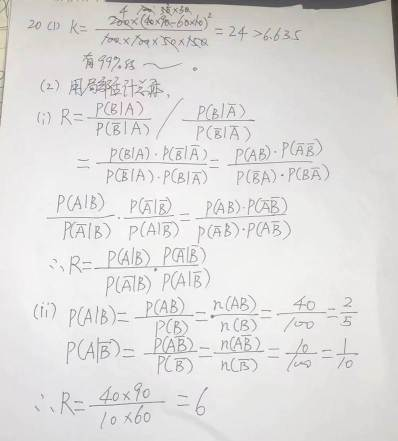 20 (1) K = 200×(40×90-60×10)² / 100×100×50×150 = 24 > 6.635
有99%
(2)
(i) R = P(B|A) / P(B̅|A) / P(B|A̅) / P(B̅|A̅)
= P(B|A)·P(B̅|A̅) / P(B̅|A)·P(B|A̅) = P(AB)·P(A̅B̅) / P(B̅A)·P(BA̅)
P(A|B) / P(A̅|B) · P(A̅|B̅) / P(A|B̅) = P(AB)·P(A̅B̅) / P(A̅B)·P(AB̅)
∴R = P(A|B) / P(A̅|B) · P(A̅|B̅) / P(A|B̅)
(ii) P(A|B) = P(AB) / P(B) = n(AB) / n(B) = 40 / 100 = 2 / 5
P(A|B̅) = P(AB̅) / P(B̅) = n(AB̅) / n(B̅) = 10 / 100 = 1 / 10
∴R = 40×90 / 10×60 = 6